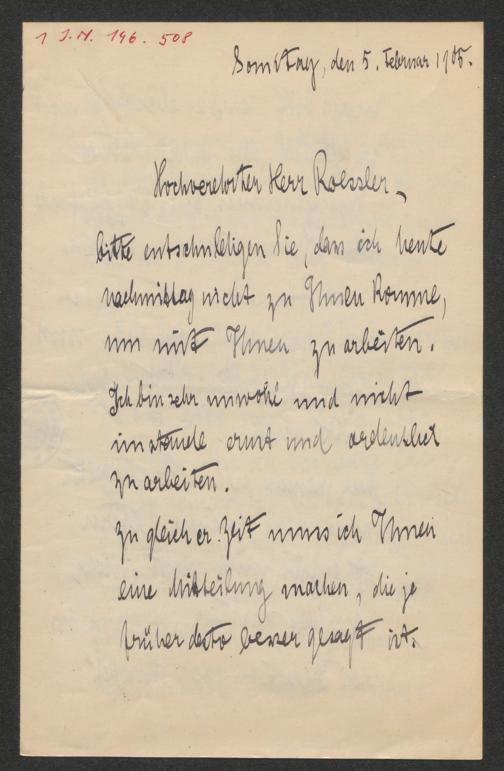 1 J.N. 196.508
Sonntag, den 5. Februar 1905.
Hochverehrter Herr Roessler,
bitte entschuldigen Sie, dass ich heute
nachmittag nicht zu Ihnen komme,
um mit Ihnen zu arbeiten.
Ich bin sehr unwohl und nicht
imstande ernst und ordentlich
zu arbeiten.
Zu gleicher Zeit muss ich Ihnen
eine Mitteilung machen, die je
früher desto besser gesagt ist.